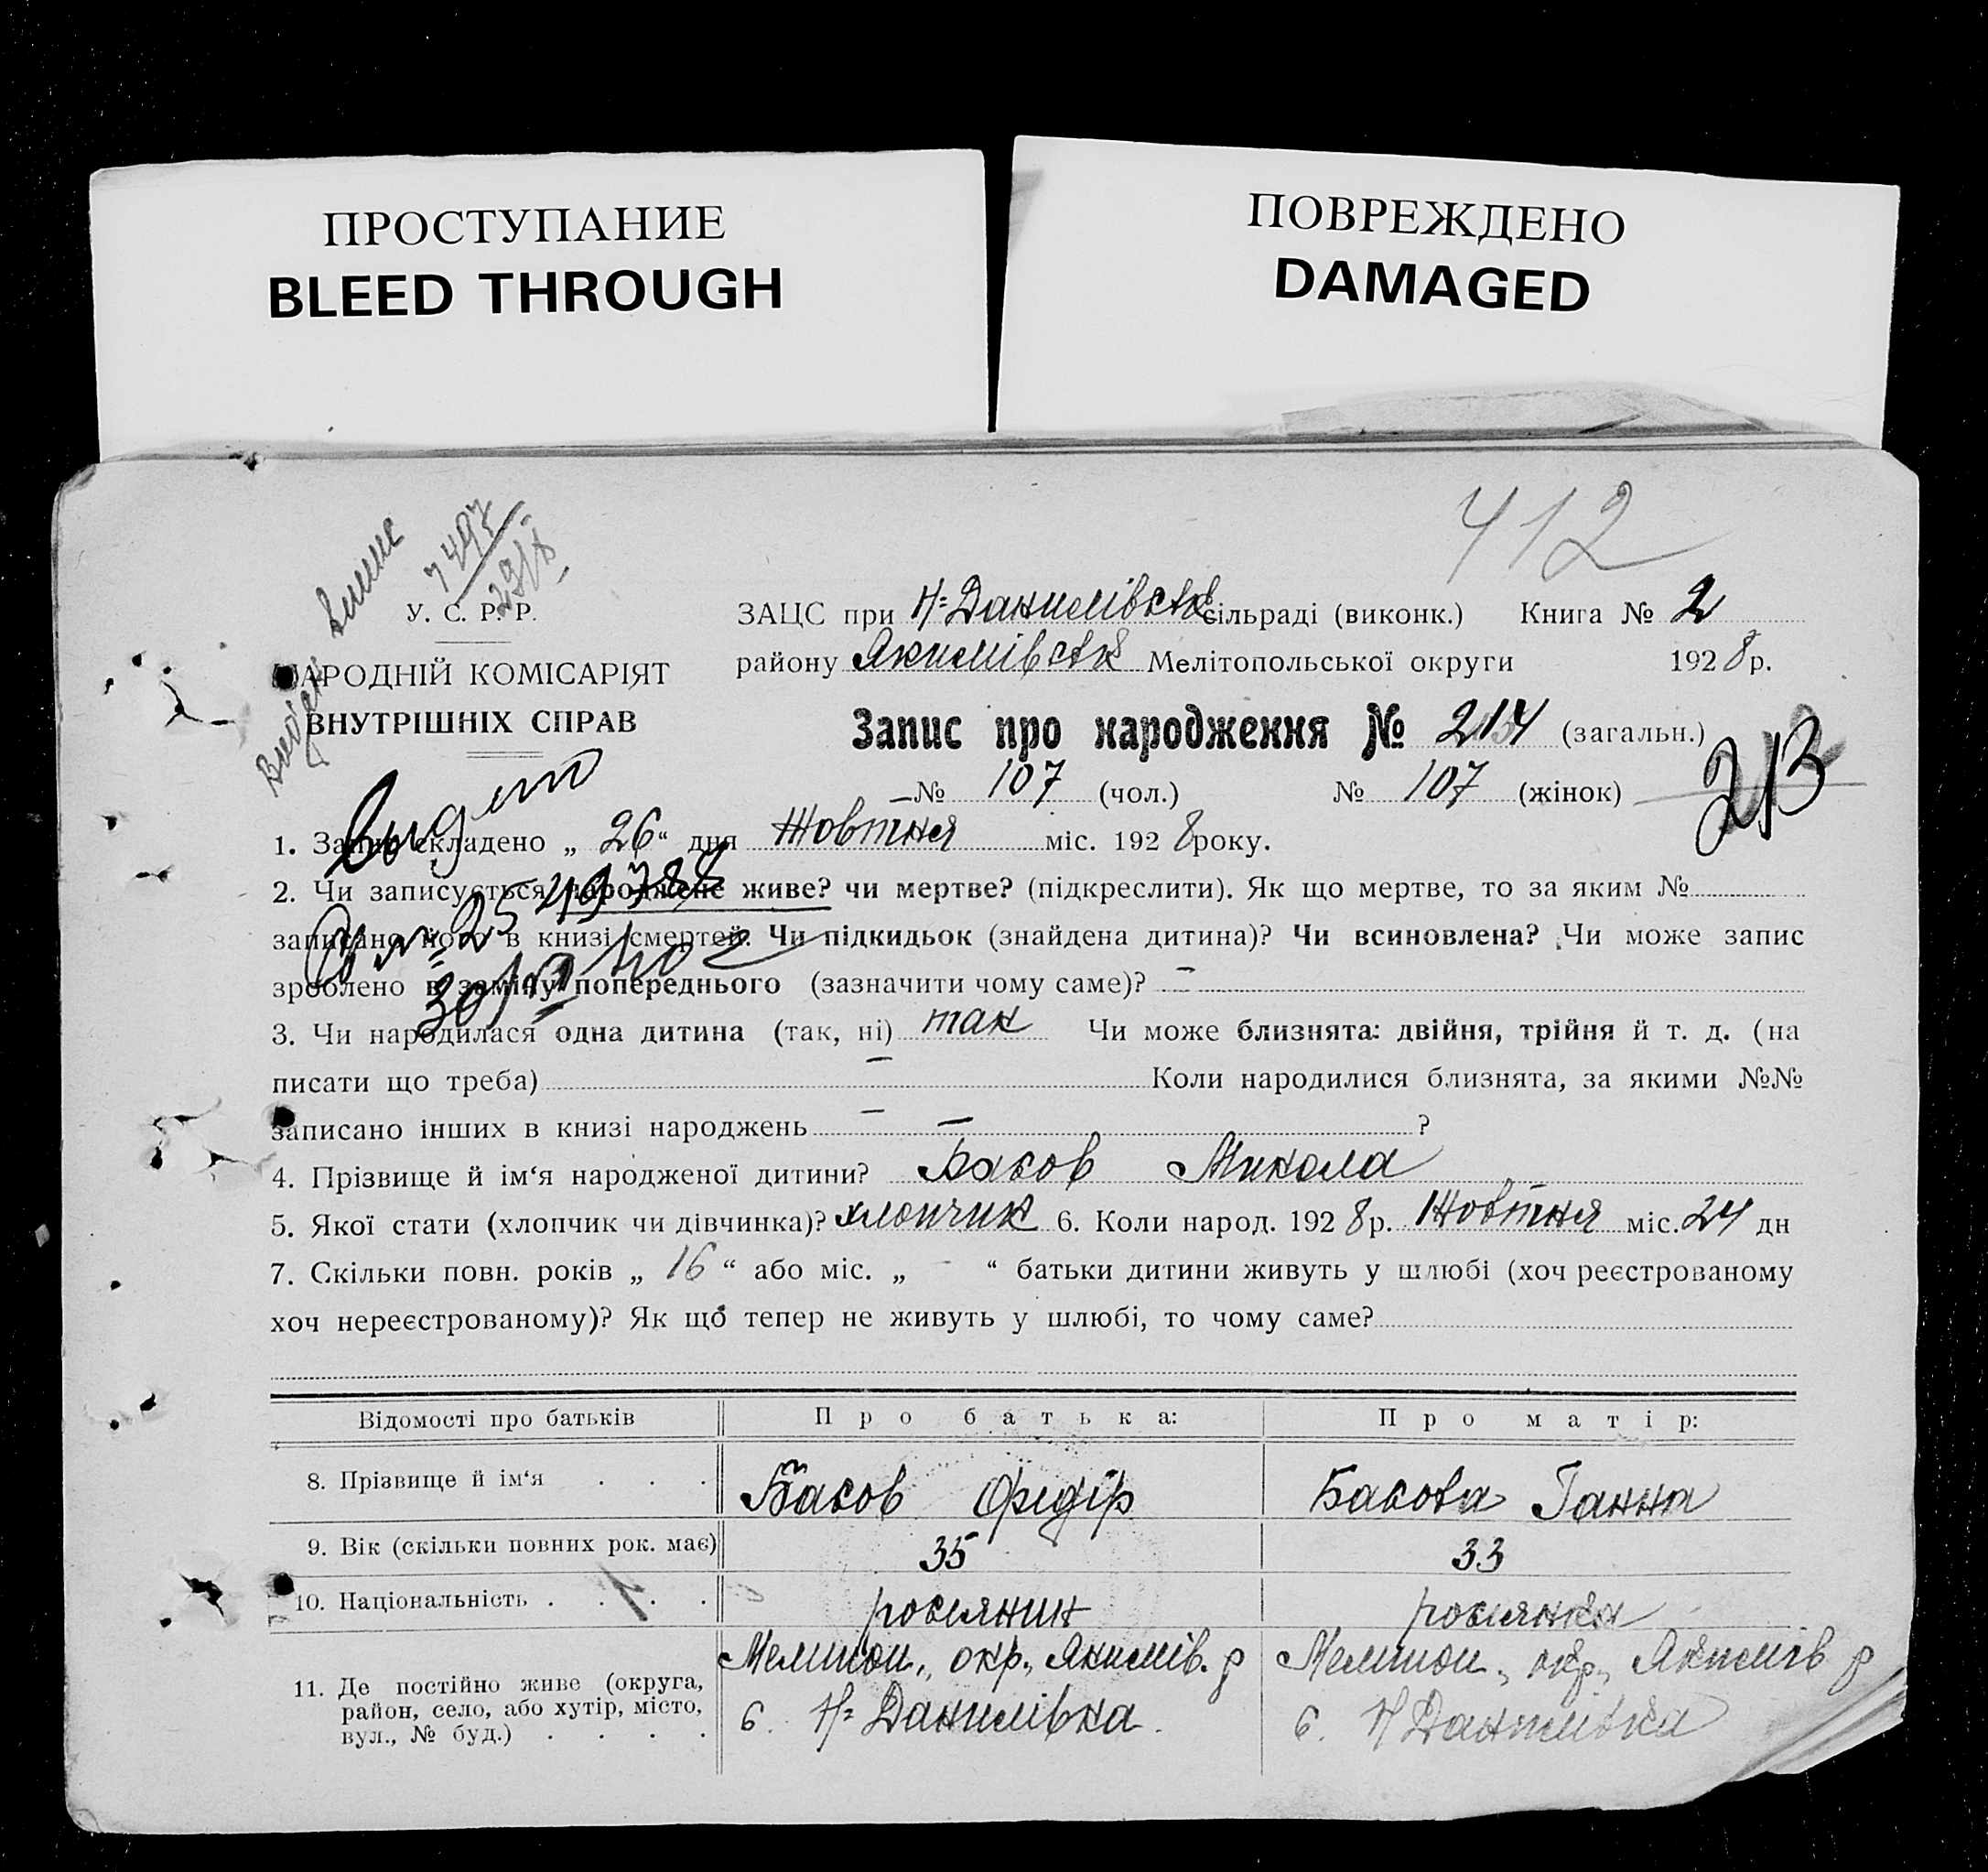 ПРОСТУПАНИЕ
BLEED THROUGH
ПОВРЕЖДЕНО
DAMAGED
412
7497
У. С. Р. Р.
НАРОДНІЙ КОМІСАРІЯТ
ВНУТРІШНІХ СПРАВ
ЗАЦС при Н-Данилівськ сільраді (виконк.) Книга № 2
району Якимівськ Мелітопольської округи 1928 р.
Запис про народження № 214 (загальн.)
213
№ 107 (чол.) № 107 (жінок)
1. Запис складено „ 26 “ дня Жовтня міс. 192 8 року.
2. Чи записується народжене живе? чи мертве? (підкреслити). Як що мертве, то за яким №
записано його в книзі смертей. Чи підкидьок (знайдена дитина)? Чи всиновлена? Чи може запис
зроблено в заміну попереднього (зазначити чому саме)? –
3. Чи народилася одна дитина (так, ні) так Чи може близнята: двійня, трійня й т. д. (на
писати що треба) – Коли народилися близнята, за якими №№
записано інших в книзі народжень – – ?
4. Прізвище й ім‘я народженої дитини? Баков Микола
5. Якої стати (хлопчик чи дівчинка)? хлопчик 6. Коли народ. 192 8 р. Жовтня міс. 24 дн
7. Скільки повн. років „ 16 “ або міс. „ - “ батьки дитини живуть у шлюбі (хоч реєстрованому
хоч нереєстрованому)? Як що тепер не живуть у шлюбі, то чому саме?
Відомості про батьків Про батька: Про матір:
8. Прізвище й ім‘я . . . Баков Федір Бакова Ганна
9. Вік (скільки повних рок. має) 35 33
10. Національність . . . . росіянин росіянка
11. Де постійно живе (округа, район, село, або хутір, місто, вул., № буд.) . . . .
Мелитоп., окр., Якимів. р
с. Н-Данилівка.
Мелитоп., окр., Якимів р
с. Н Данилівка